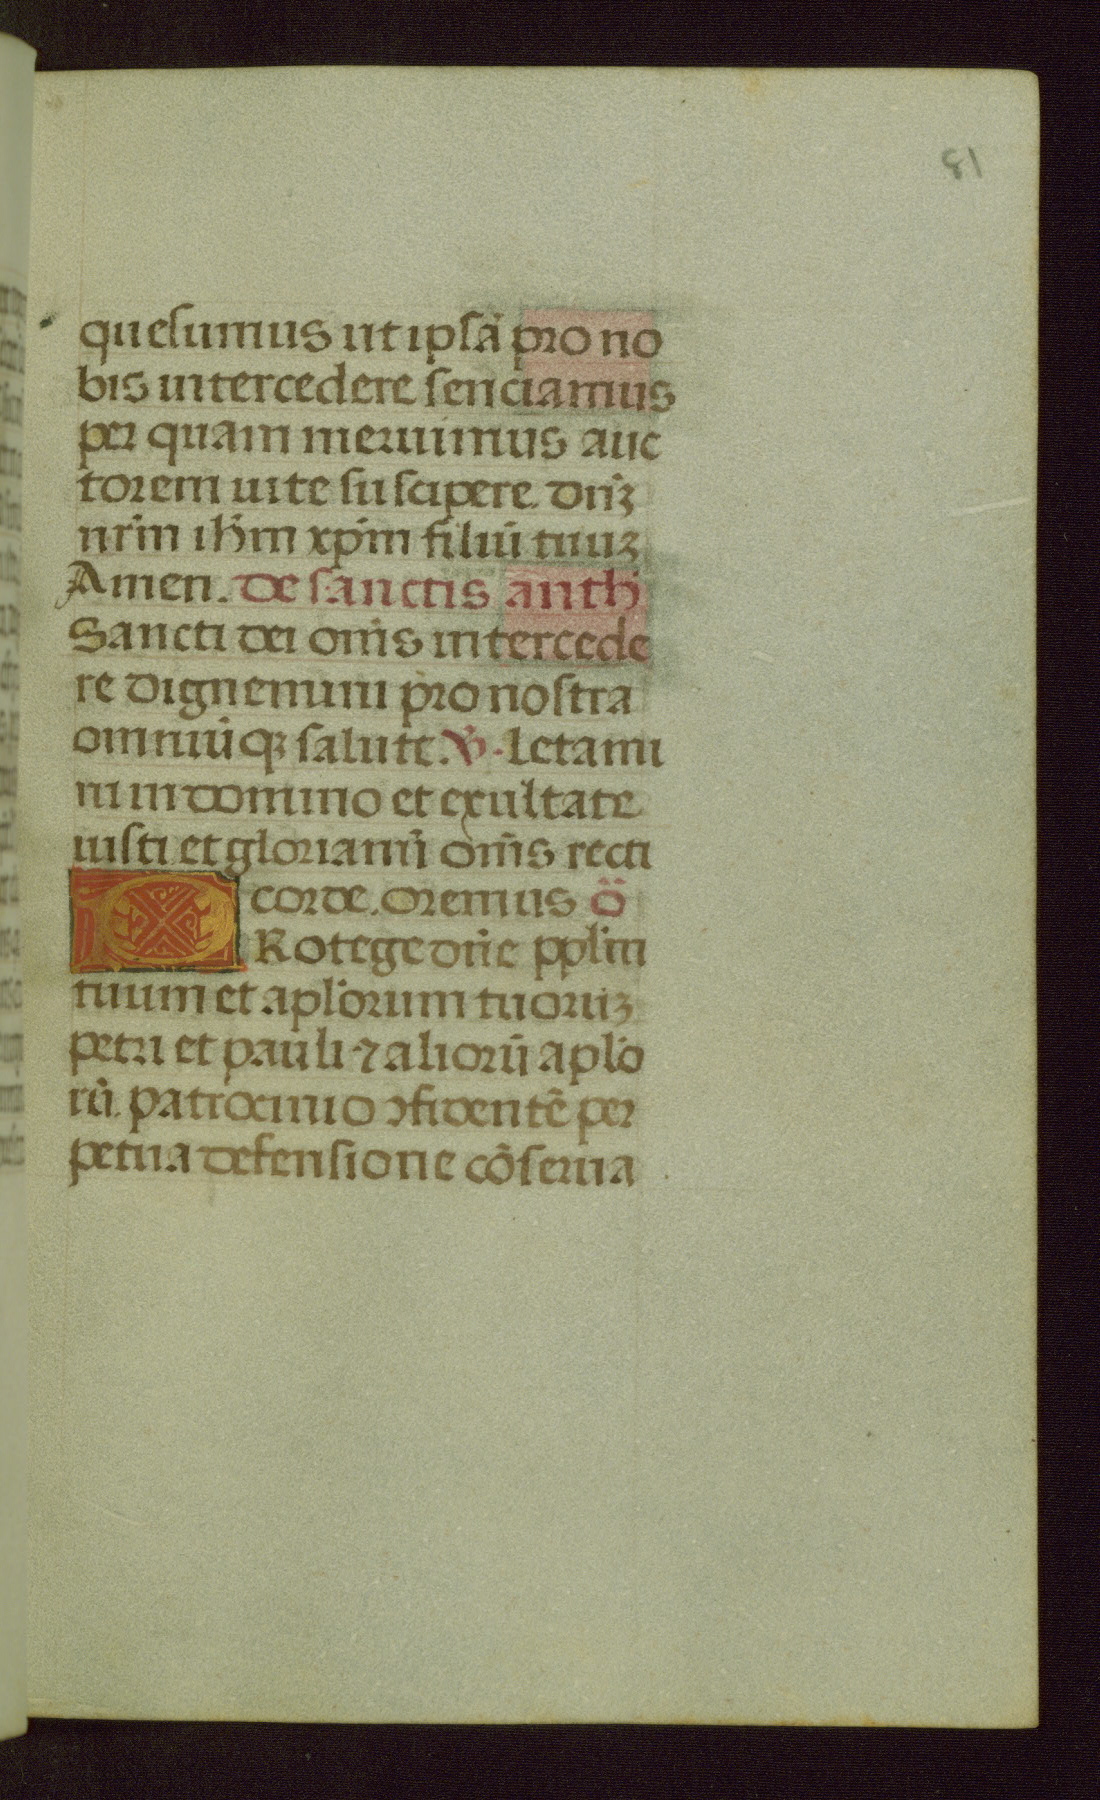 81
quesumus ut ipsā pro no
bis intercedere senciamus
per quam meruimus auc
torem uite suscipere. dn̄ꝫ
nr̄m ih̄m xp̄m filiū tuuꝫ
Amen. De sanctis anth̄
Sancti dei om̄s intercede
re dignemini pro nostra
omniūqꝫ salute. ℣. Letami
ni in domino et exultate
iusti et gloriamī om̄s recti
corde. oremus ō
PRotege dn̄e ppl̄m
tuum et apl̄orum tuoruꝫ
petri et pauli ⁊ aliorū apl̄o
rū. patrocinio ↄfidentē per
petua defensione cōserua